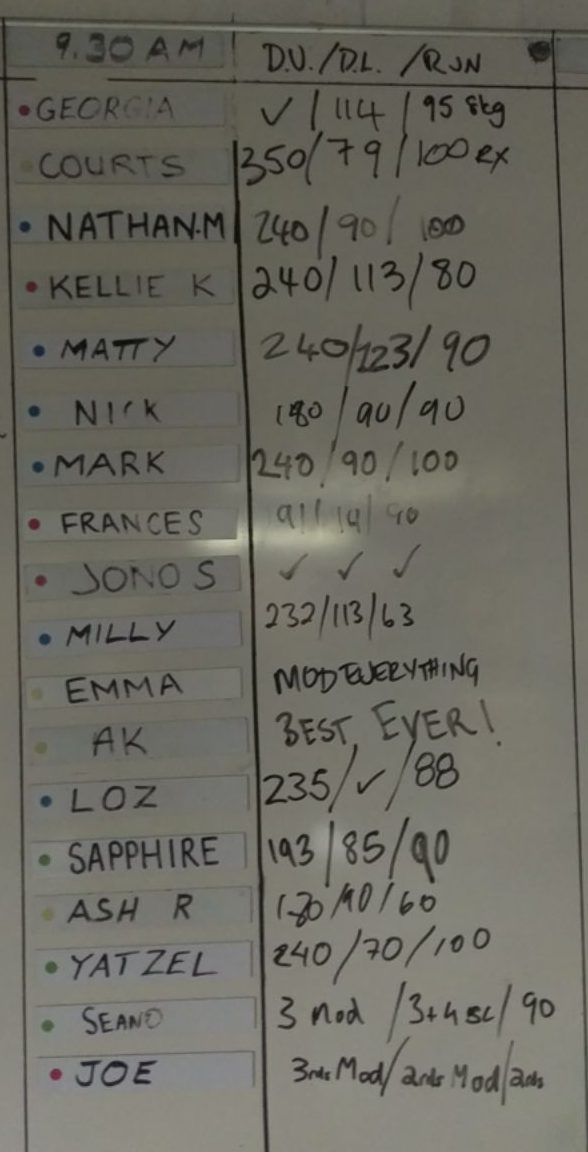 9.30 AM D.U./D.L. /RUN
GEORGIA ✓ / 114 / 95 8kg
COURTS 350/79/100 RX
NATHAN.M 240/90/ 100
KELLIE K 240/113/80
MATTY 240/123/90
NICK 180/90/90
MARK 240/90/100
FRANCES 91/ 90
JONO S ✓ ✓ ✓
MILLY 232/113/63
EMMA MOD EVERYTHING
AK BEST EVER!
LOZ 235/✓/88
SAPPHIRE 193/85/90
ASH R /60
YATZEL 240/70/100
SEANO 3 mod /3+4 sc/ 90
JOE 3rds Mod/2rds Mod/2rds